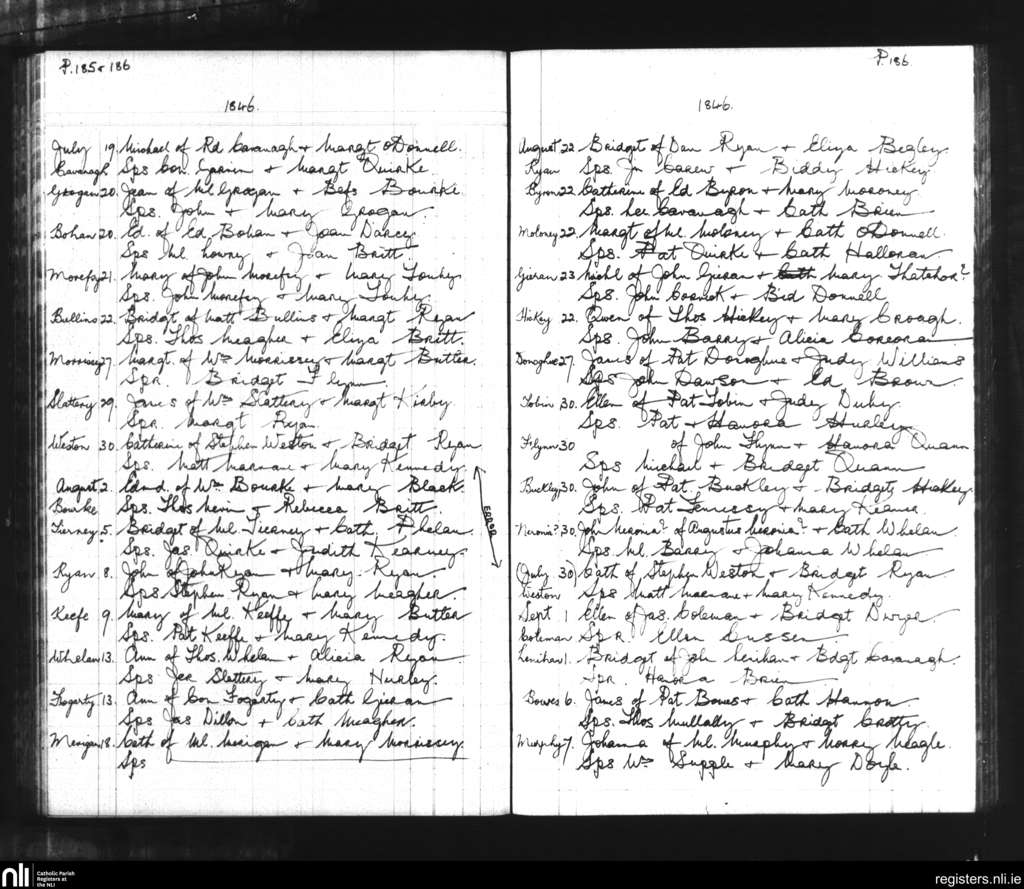 P. 185 & 186
1846.
July 19. Michael of Rd Cavanagh & Margt O'Donnell.
Cavanagh Sps Con. & Margt Quirke
Grogan 20. Jean of Ml Grogan & Bess Bourke.
Sps. John & Mary Grogan.
Bohan 20. Ed. of Ed Bohan & Joan Darcy
Sps Ml & Joan Britt.
Morefy 21. Mary of John Morefy & Mary
Sps. John Morefy & Mary
Bullins 22. Bridgt of Matt Bullins & Margt Ryan
Sps. Thos Meagher & Eliza Britt.
Morrissey 27. Margt. of Wm Morrissey & Margt Butler.
Spr. Bridget Flynn.
Slattery 29. James of Wm Slattery & Margt Kirby.
Spr. Margt Ryan.
Weston 30. Catherine of Stephen Weston & Bridget Ryan
Sps. Matt Marnane & Mary Kennedy.
August 2. Edmd. of Wm Bourke & Mary Black.
Bourke Sps. Thos Nevin & Rebecca Britt.
Tierney 5. Bridget of Ml. Tierney & Cath. Phelan.
Sps. Jas. Quirke & Judith Kearney.
ERROR
Ryan 8. John of John Ryan & Mary Ryan.
Sps Stephen Ryan & Mary Meagher
Keefe 9. Mary of Ml. Keeffe & Mary Butler
Sps. Pat Keeffe & Mary Kennedy.
Whelan 13. Ann of Thos. Whelan & Alicia Ryan
Sps Jer Slattery & Mary Hurley.
Fogarty 13. Ann of Con Fogarty & Cath Gieran
Sps Jas Dillon & Cath Meagher.
Merigan 18. Cath of Ml. Merigan & Mary Morrissey.
Sps
P. 186.
1846.
August 22 Bridget of Dan Ryan & Eliza Begley.
Ryan Sps. Jn Carew & Biddy Hickey
Byron 22. Catherine of Ed Byron & Mary Moroney
Sps. Cavanagh & Cath Brien
Moloney 22. Margt of Ml Moloney & Cath O'Donnell.
Sps. Pat Quirke & Cath Halloran
Gieran 23 Michl of John Gieran & Cath Mary Thatcher?
Sps. John & Bid Donnell
Hickey 22. Owen of Thos Hickey & Mary Croagh.
Sps. John Barry & Alicia Corcoran
Donoghue 27. James of Pat Donoghue & Judy Williams
Sps John Dawson & Ed Brown.
Tobin 30. Ellen of Pat Tobin & Judy
Sps. Pat & Hanora Hurley
Flynn 30 of John Flynn & Hanora Quann
Sps Michael & Bridget Quann
Buckley 30. John of Pat. Buckley & Bridget Hickey.
Sps. Pat Fennessy & Mary Keane.
Neronia? 30. John Neronia? of Augustus Neronia? & Cath Whelan
Sps Ml. Barry & Johanna Whelan
(July 30) Cath of Stephen Weston & Bridget Ryan.
Weston Sps Matt Marnane & Mary Kennedy.
Sept. 1 Ellen of Jas. Coleman & Bridget Dwyer.
Coleman Spr. Ellen
Lenihan 1. Bridget of John Lenihan & Bdgt Cavanagh.
Spr. Hanora Brien
Bowes 6. James of Pat Bowes & Cath Hannon.
Sps. Thos Mullally & Bridget Crotty
Murphy 7. Johanna of Ml. Murphy & Norry Neagle.
Sps Wm Supple & Mary Doyle.
nli Catholic Parish
Registers at
the NLI
registers.nli.ie